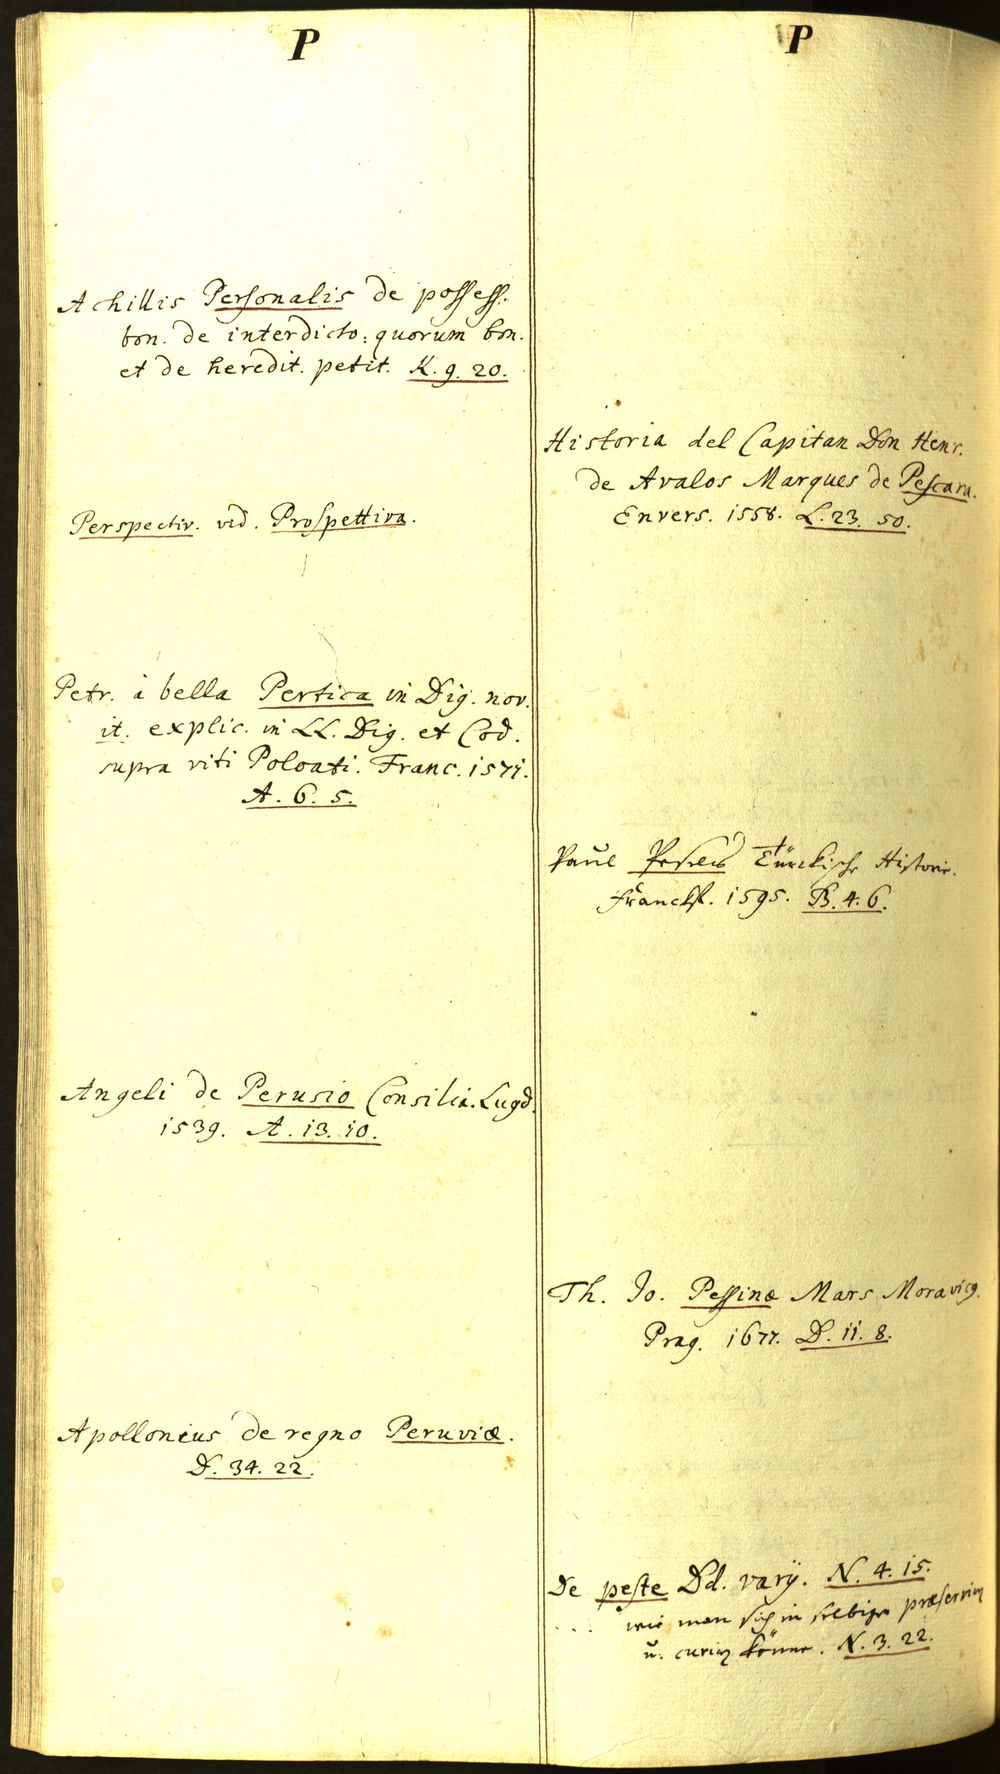 P
Achillis Personalis de possess.
bon. de interdicto: quorum bon.
et de heredit. petit. K. 9. 20.
Perspectiv. vid. Prospettiva.
Petr. à bella Pertica in Dig. nov.
it. explic. in LL. Dig. et Cod.
supra viti Poloati. Franc. 1571.
A. 6. 5.
Angeli de Perusio Consilia. Lugd.
1539. A. 13. 10.
Apollonius de regno Peruviæ.
D. 34. 22.
P
Historia del Capitan Don Henr.
de Avalos Marques de Pescara.
Envers. 1558. L. 23. 50.
Paul Türckische Historie.
Franckf. 1595. B. 4. 6.
Th. Jo. Pessinæ Mars Moravicq.
Prag. 1677. D. 11. 8.
De peste Dd. varÿ. N. 4. 15.
.... wie man sich in selbiger præservirn
u. curirn könne. N. 3. 22.